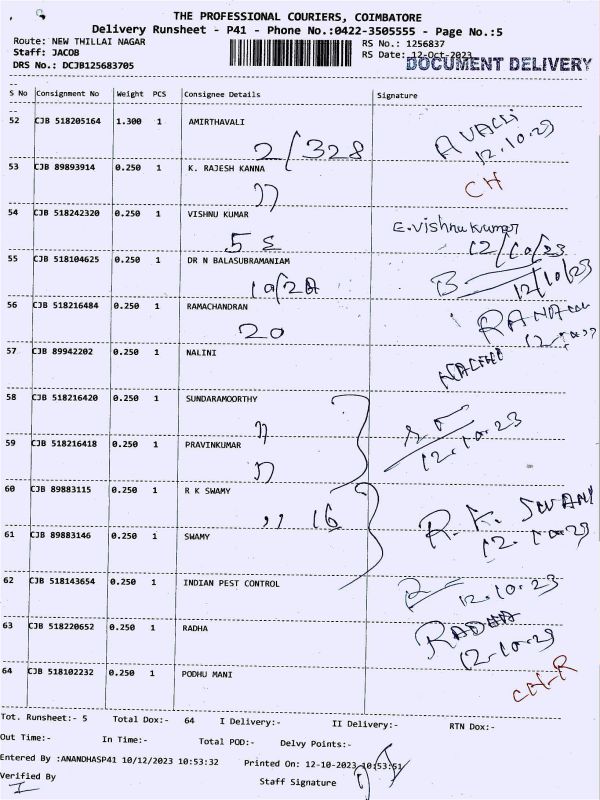 THE PROFESSIONAL COURIERS, COIMBATORE
Delivery Runsheet - P41 - Phone No.:0422-3505555 - Page No.:5
Route: NEW THILLAI NAGAR RS No.: 1256837
Staff: JACOB RS Date: 12-Oct-2023
DOCUMENT DELIVERY
DRS No.: DCJB125683705
S No Consignment No Weight PCS Consignee Details Signature
52 CJB 518205164 1.300 1 AMIRTHAVALI AVALLI
2/328 12.10.23
53 CJB 89893914 0.250 1 K. RAJESH KANNA CH
54 CJB 518242320 0.250 1 VISHNU KUMAR E.vishnu kumar
55 12/10/23
55 CJB 518104625 0.250 1 DR N BALASUBRAMANIAM
12/10/23
56 CJB 518216484 0.250 1 RAMACHANDRAN
20
57 CJB 89942202 0.250 1 NALINI
58 CJB 518216420 0.250 1 SUNDARAMOORTHY
12.10.23
59 CJB 518216418 0.250 1 PRAVINKUMAR
60 CJB 89883115 0.250 1 R K SWAMY
,, 16 R.K. SWAMI
61 CJB 89883146 0.250 1 SWAMY 12.10.23
62 CJB 518143654 0.250 1 INDIAN PEST CONTROL 12.10.23
63 CJB 518220652 0.250 1 RADHA RADHA
12.10.23
64 CJB 518102232 0.250 1 PODHU MANI CH-R
Tot. Runsheet:- 5 Total Dox:- 64 I Delivery:- II Delivery:- RTN Dox:-
Out Time:- In Time:- Total POD:- Delvy Points:-
Entered By :ANANDHASP41 10/12/2023 10:53:32 Printed On: 12-10-2023 10:53:51
Verified By Staff Signature